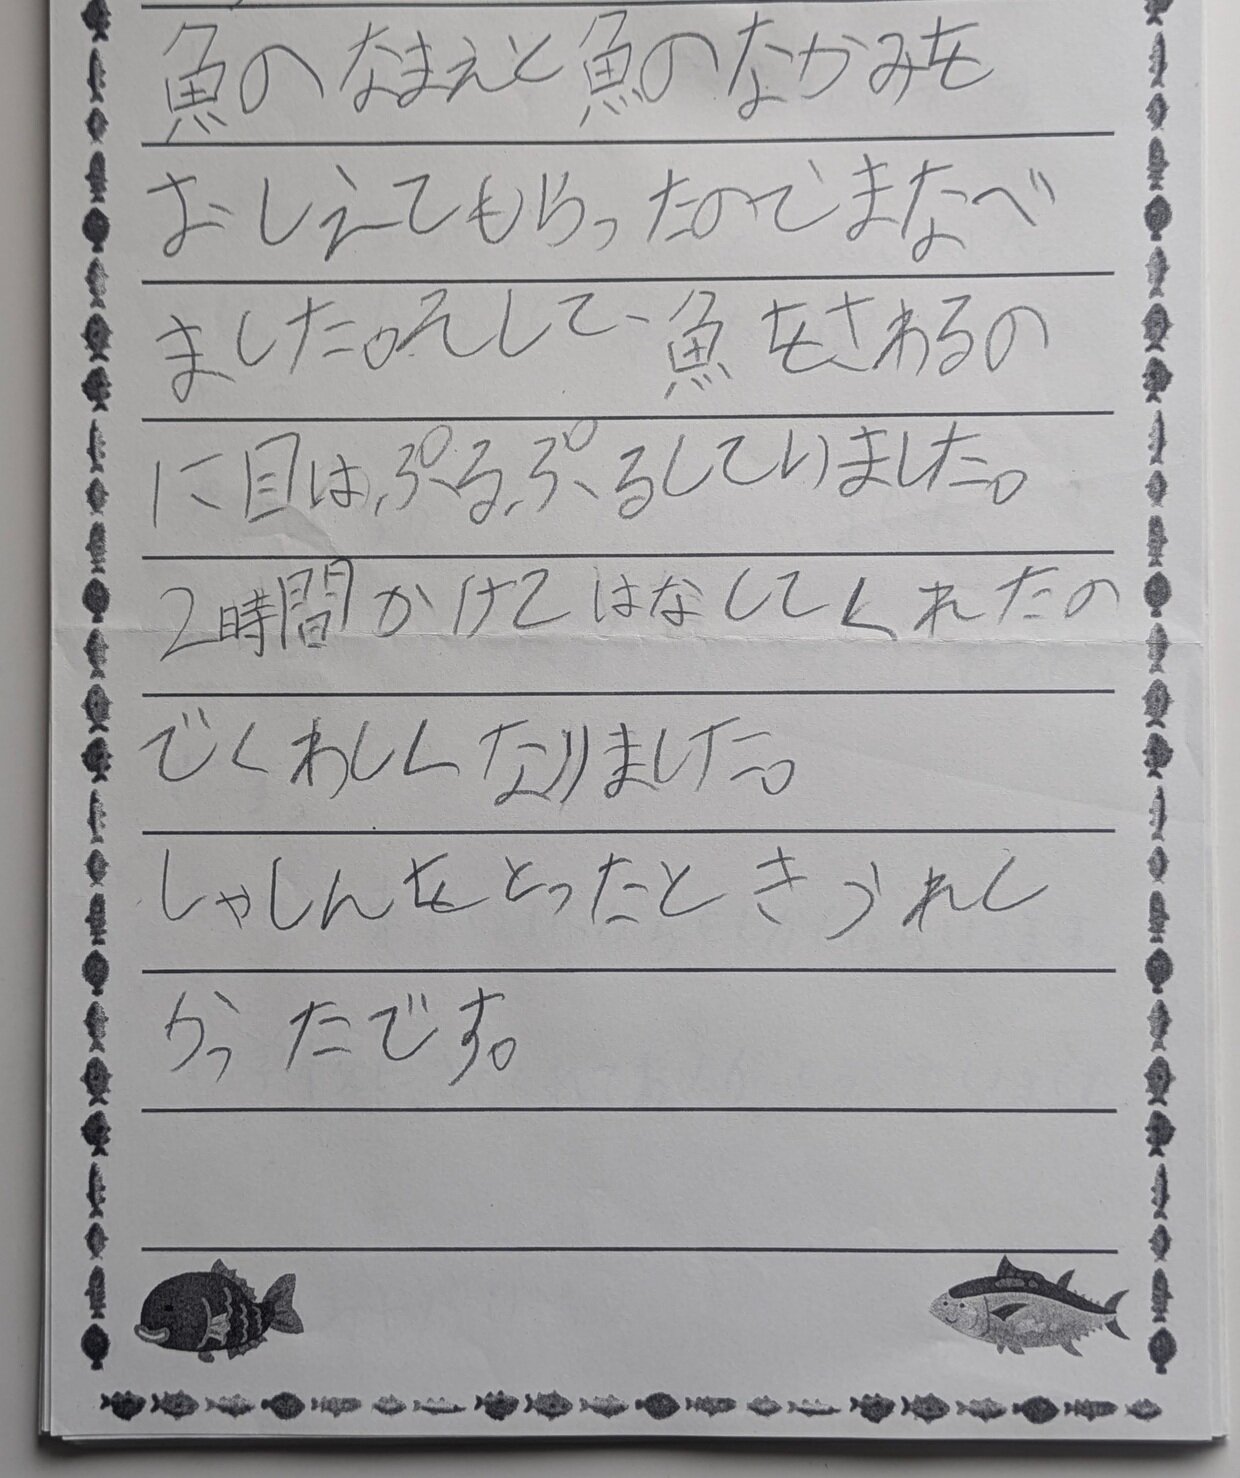 魚のなまえと魚のなかみを
おしえてもらったのでまなべ
ました。そして、魚をさわるの
に目は、ぷるぷるしていました。
2時間かけてはなしてくれたの
でくわしくなりました。
しゃしんをとったときうれし
かったです。